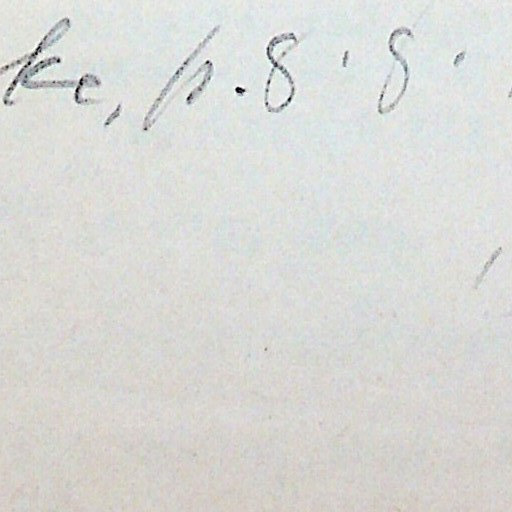 ke, p. 8 · 8 ·